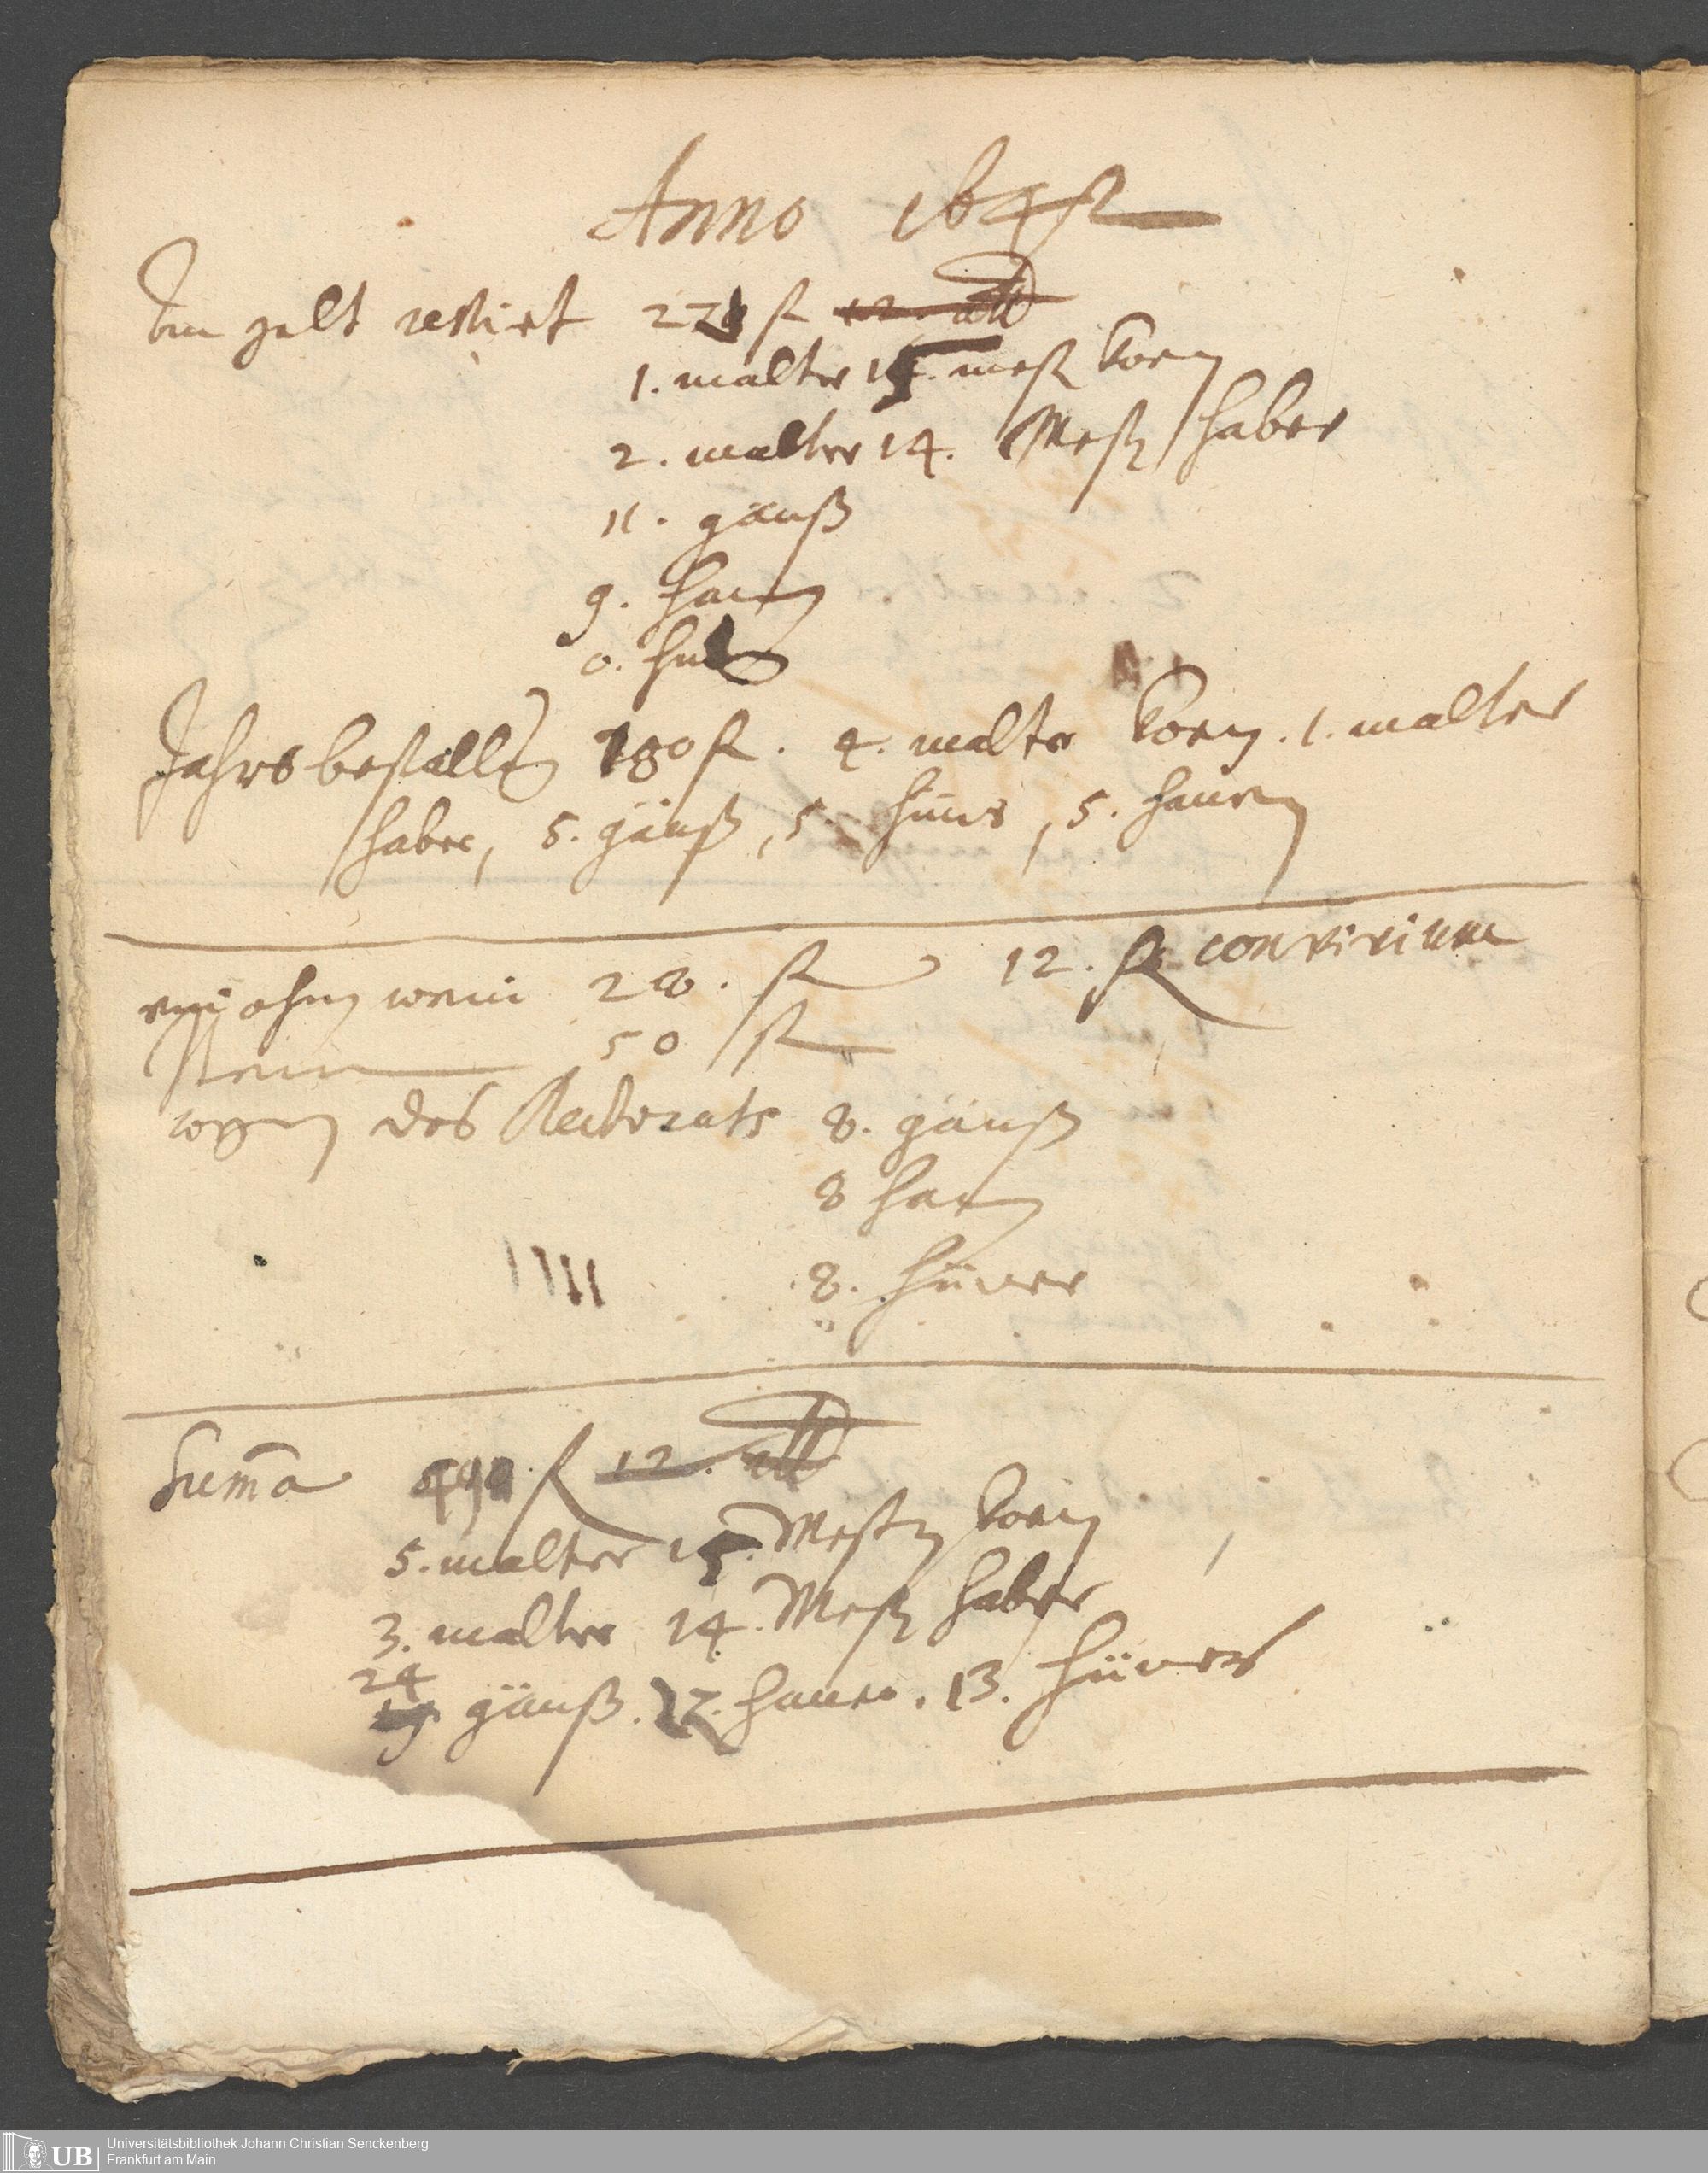 Anno 164
An gelt restirt 228 fl 12. alb
1. malter 15. mest Korn
2. malter 14. Mest haber
11. gänß
9. hanen
0. hüner
Jahrsbestallung 180 fl. 4. malter Korn. 1. malter
haber, 5. gänß, 5. hüner, 5. hanen
ein ohm wein 28. fl 12. fl convivium
50 fl
wegen des Rectorats 8. gänß
8 hanen
8. hüner
Summa 498 fl 12. alb
5. malter 15. Mesten Korn
3. malter 14. Mest haber
24
19 gänß. 22. hanen. 13. hüner
UB Universitätsbibliothek Johann Christian Senckenberg
Frankfurt am Main